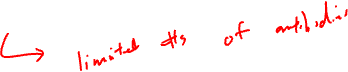 ↳ limited #s of antibodies